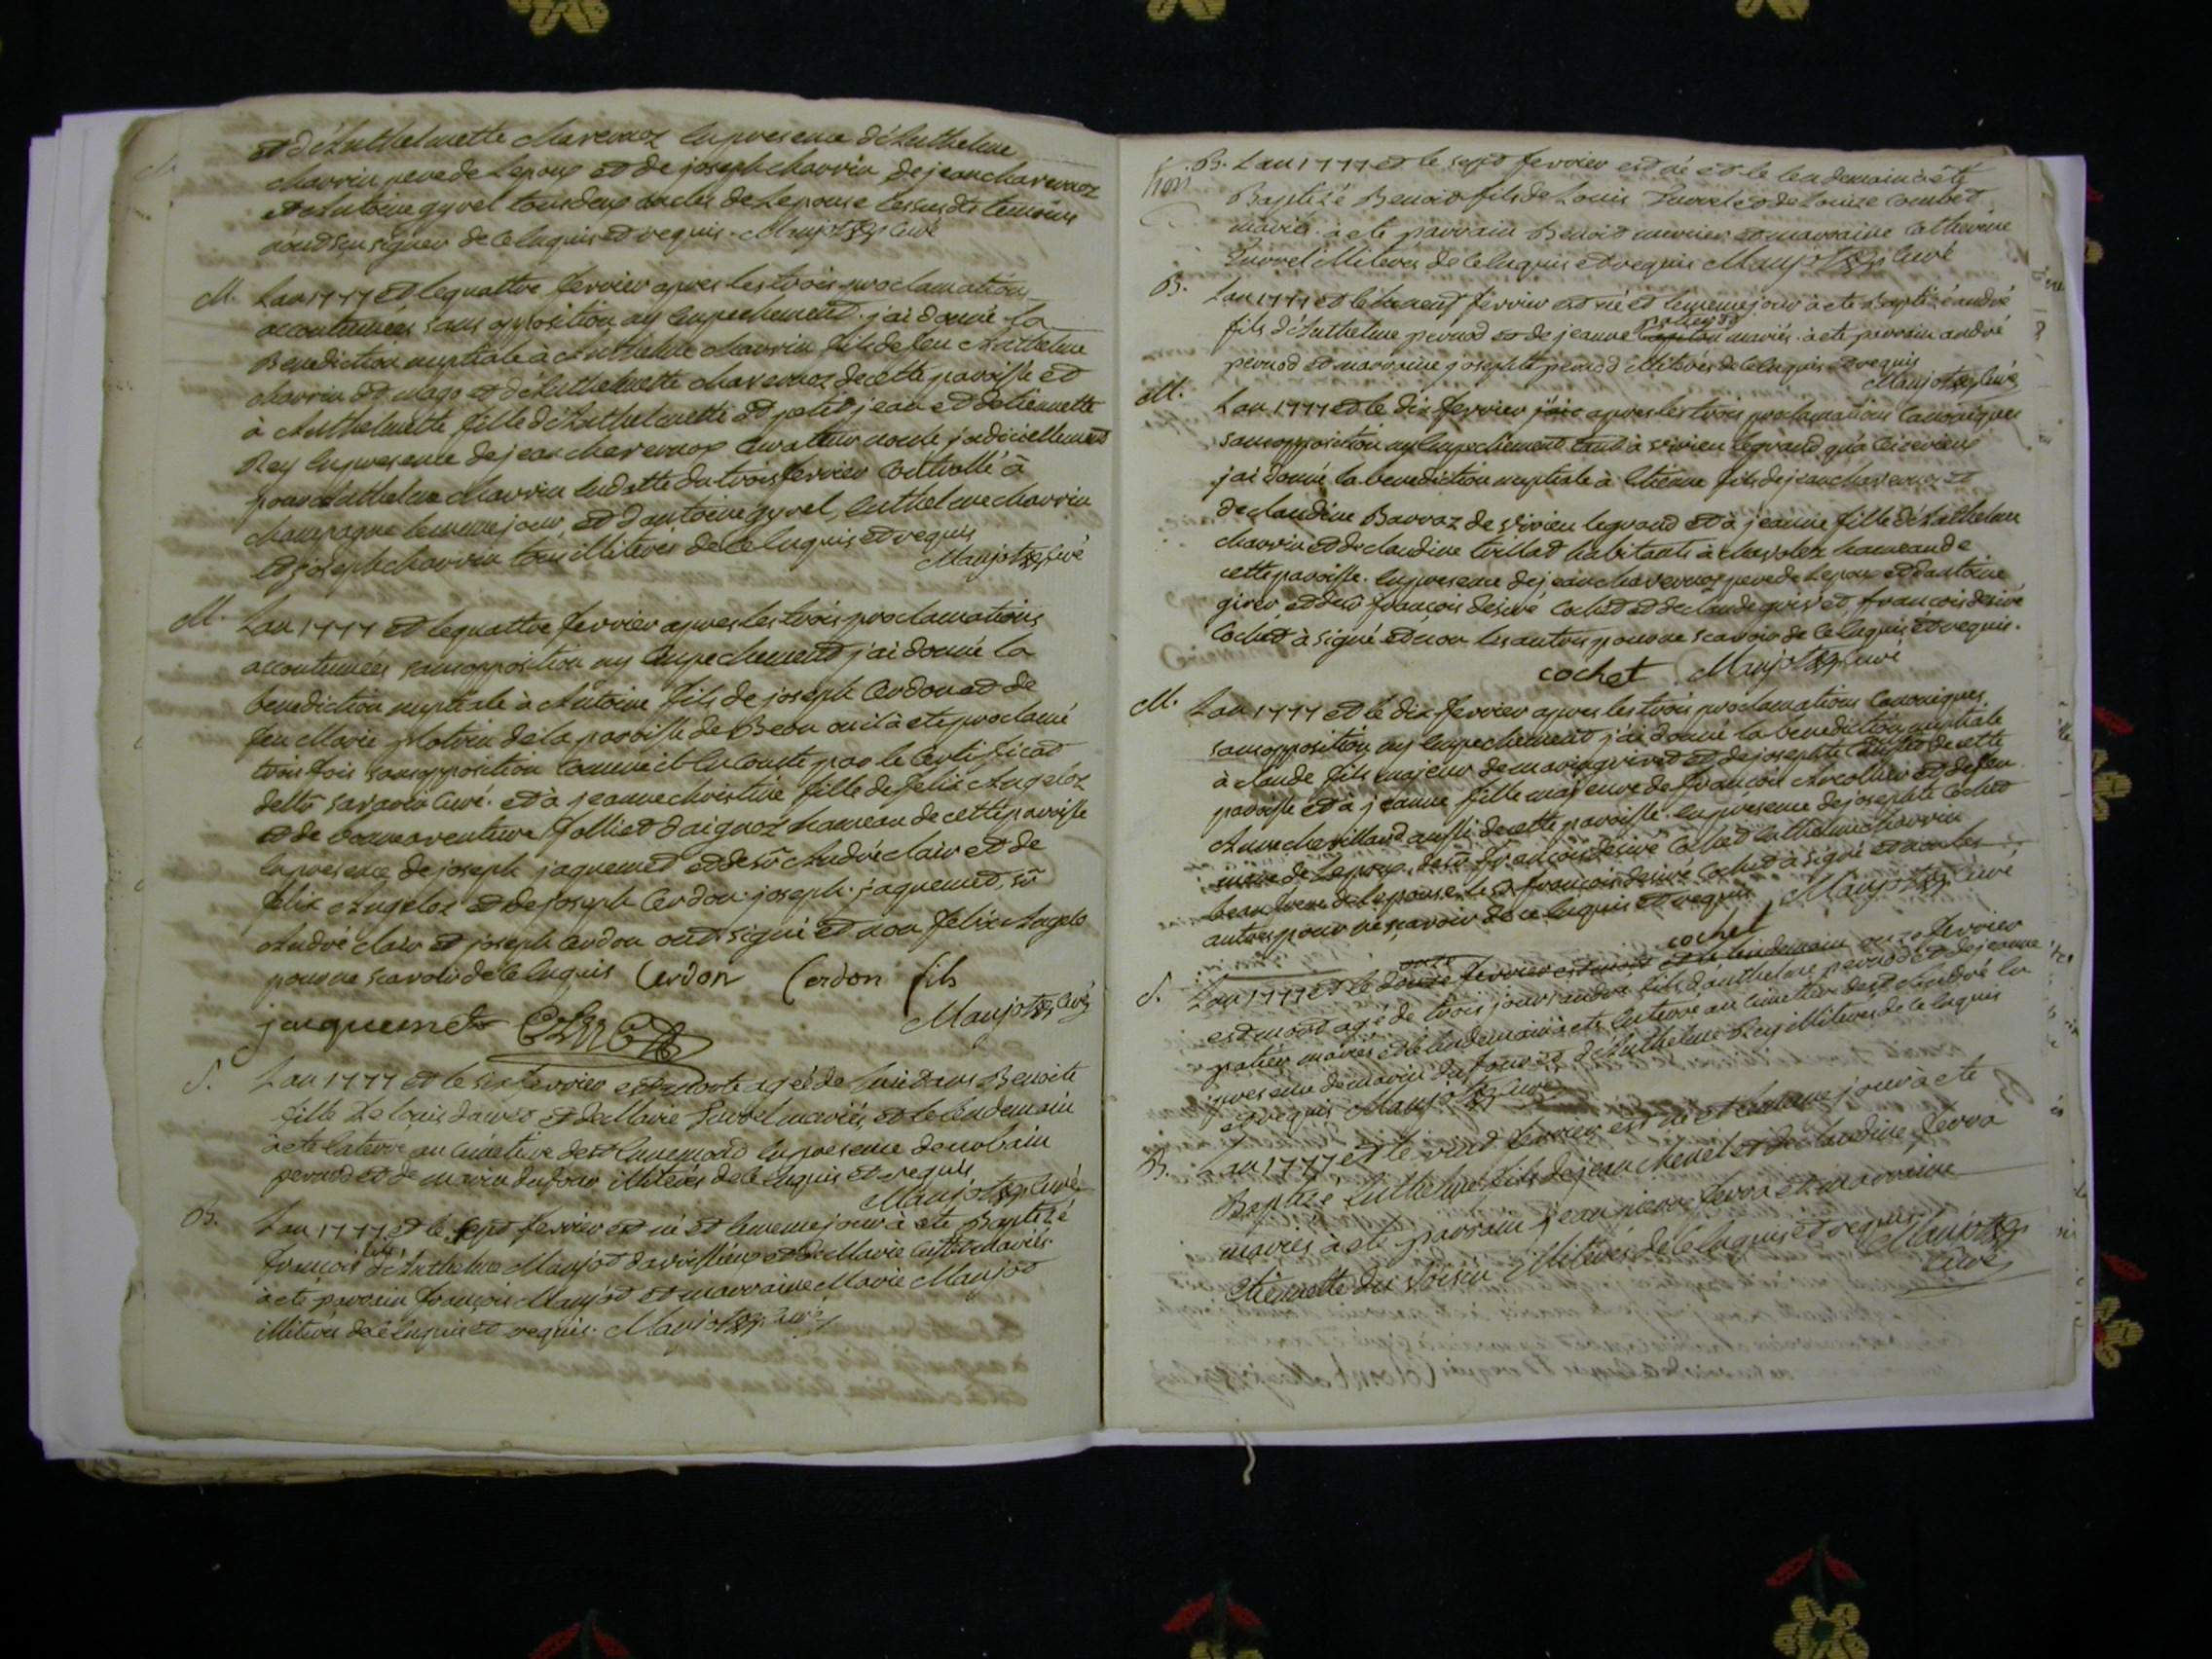 et d'Anthelmette Charvernoz en presence d'Anthelme
Charvin pere de lepoux et de joseph charvin, de jean charvernoz
et Antoine gyrel tous deux oncles de lepouse lesusdts temoins
n'ont seu signer de ce Enquis et requis. Maujot curé
M. Lan 1777 et le quattre fevrier apres les trois proclamation
accoutumées sans opposition ny empechement j'ai donné la
Benediction nuptiale à Anthelme charvin fils de feu Anthelme
charvin dt mago et d'Anthelmette charvernoz de cette paroisse et
à Anthelmette fille d'Anthelmette dt petit jean et d'etiennette
Rey en presence de jean charvernoz curateur nomé judiciellement
pour Anthelme charvin en datte du trois fevrier controllé à
champagne le meme jour, et d'antoine gyrel, enthelme charvin
et joseph charvin tous illiteres de ce Enquis et requis
Maujot curé
M. Lan 1777 et le quattre fevrier apres les trois proclamations
accoutumées sans opposition ny empechement j'ai donné la
benediction nuptiale à Antoine fils de joseph Cerdon et de
feu Marie plotvin de la paroisse de Beon ou il à ete proclamé
trois fois sans opposition comme il en conste par le certificat
de Mr savarin curé. et à jeanne christine fille de felix Angeloz
et de bonneaventure Jolliet d'aignoz hameau de cette paroisse
en presence de joseph jaquemet et de sr André clair et de
felix Angeloz et de joseph Cerdon. joseph jaquemet, sr
André clair et joseph cerdon ont signé et non felix Angelo
pour ne scavoir de ce Enquis Cerdon Cerdon fils
jaquemet Maujot curé
S. Lan 1777 et le six fevrier est morte agée de huit ans Benoite
fille de louis daivet et de Marie Surrel mariés, et le lendemain
à ete enterré au cimetiere de st Ennemond en presence de urbain
pernod et de marin dufour illiterés de ce enquis et requis
Maujot curé
B. Lan 1777 et le sept fevrier est né et le meme jour à ete Baptizé
françois fils d'Anthelme Maujot darvissieu et de Marie mariés.
à ete parrain françois Maujot et marraine Marie Maujot
illiterés de ce enquis et requis. Maujot curé
B. Lan 1777 et le sept fevrier est né et le lendemain à été
Baptizé Benoit fils de Louis Surrel et de Louise Combet
mariés. à ete parrain Benoit mercier et marraine catherine
Surrel illiterés de ce enquis et requis Maujot curé
B. Lan 1777 et le neuf fevrier est né et le meme jour à ete Baptizé andré
fils d'Anthelme pernod et de jeanne mariés. à ete parrain andré
pernod et marraine josephte pernod illiterés de ce Enquis et requis
Maujot curé
M. Lan 1777 et le dix fevrier j'aie apres les trois proclamations canoniques
sans opposition ny empechement tant à virieu le grand qua
j'ai donné la benediction nuptiale à Etienne fils de jean charvernoz et
de claudine Barraz de virieu le grand et à jeanne fille d'Anthelme
charvin et de claudine trillat habitants à hameau de
cette paroisse. en presence de jean charvernoz pere de lepoux et d'antoine
girer et de sr françois desiré Cochet et de claude guivet, françois desiré
Cochet à signé et non les autres pour ne scavoir de ce Enquis et requis.
cochet Maujot curé
M. Lan 1777 et le dix fevrier apres les trois proclamations canoniques
sans opposition ny empechement j'ai donné la benediction nuptiale
à claude fils majeur de marin guivet et de josephte de cette
paroisse et à jeanne fille majeure de françois Arcollier et de feu
Anne chevilland aussi de cette paroisse. en presence de josephte Cochet
mere de lepoux, de sr françois desiré Cochet enthelme charvin
beau frere de lepouse. le s françois desiré Cochet à signé et non les
autres pour ne scavoir de ce enquis et requis Maujot curé
cochet
S. Lan 1777 et le onze fevrier est mort et le lendemain onze fevrier
est mort agé de trois jours andré fils d'anthelme pernod et de jeanne
mariés et le lendemain à ete enterré au cimetiere de st André en
presence de marin dufour et d'Anthelme Rey illiterés de ce Enquis
et requis Maujot curé
B. Lan 1777 et le vint fevrier est né et le meme jour à ete
Baptizé Enthelme fils de jean Menet et de claudine ferra
mariés à ete parrain jean pierre ferra et marraine
Etiennette du voisin illiterés de ce Enquis et requis
Maujot
curé